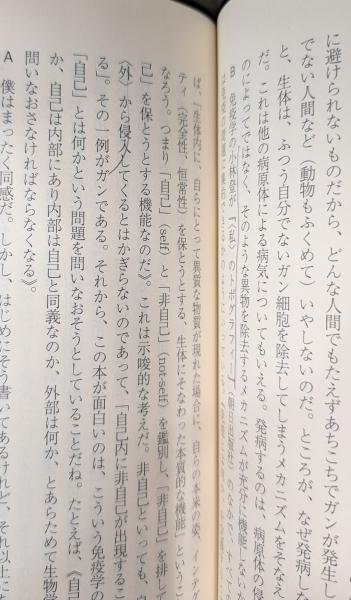 に避けられないものだから、どんな人間でもたえずあちこちでガンが発生し
でない人間など（動物もふくめて）いやしないのだ。ところが、なぜ発病しな
と、生体は、ふつう自分でないガン細胞を除去してしまうメカニズムをそなえ
だ。これは他の病原体による病気についてもいえる。発病するのは、病原体の侵
のによってではなく、そのような異物を除去するメカニズムが充分に機能しないか
B 免疫学の小林登が『〈私〉のトポグラフィー』（朝日出版社）のなかで、すべ
ば、『生体内に、自らにとって異質な物質が現れた場合に、自らの本来の姿、イン
ティ（完全性、恒常性）を保とうとする、生体にそなわった本質的な機能』というこ
なろう。つまり「自己」（self）と「非自己」（not self）を鑑別し、「非自己」を排し
己」を保とうとする機能なのだ》。これは示唆的な考えだ。非自己といっても、
〈外〉から侵入してくるとはかぎらないのであって、「自己内に非自己が出現するこ
る」。その一例がガンである。それから、この本が面白いのは、こういう免疫学の
「自己」とは何かという問題を問いなおそうとしていることだね。たとえば、《自己
か、自己は内部にあり内部は自己と同義なのか、外部は何か、とあらためて生物学
問いなおさなければならなくなる》。
A 僕はまったく同感だ。しかし、はじめにそう書いてあるけれど、それ以上に